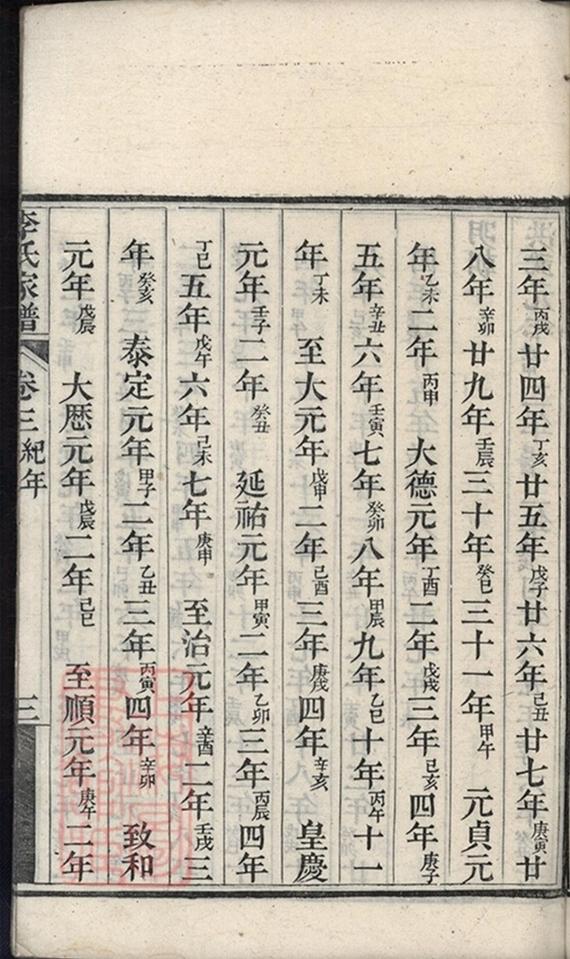 三年丙戌廿四年丁亥廿五年戊子廿六年己丑廿七年庚寅廿
八年辛卯廿九年壬辰三十年癸巳三十一年甲午　元貞元
年乙未二年丙申　大德元年丁酉二年戊戌三年己亥四年庚子
五年辛丑六年壬寅七年癸卯八年甲辰九年乙巳十年丙午十一
年丁未　至大元年戊申二年己酉三年庚戌四年辛亥　皇慶
元年壬子二年癸丑　延祐元年甲寅二年乙卯三年丙辰四年
丁巳五年戊午六年己未七年庚申　至治元年辛酉二年壬戌三
年癸亥　泰定元年甲子二年乙丑三年丙寅四年辛卯　致和
元年戊辰　大歷元年戊辰二年己巳　至順元年庚午二年
李氏家譜　卷三紀年　三